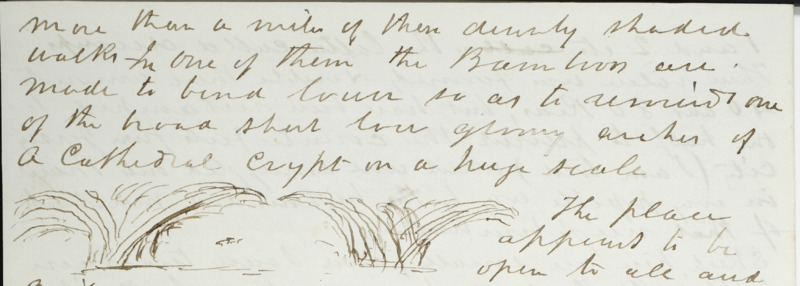 more than a mile of these densely shaded
walks In one of them the Bamboos are
made to bend lower so as to remind one
of the broad short low gloomy arches of
a Cathedral Crypt on a huge scale
The place
appears to be
open to all and